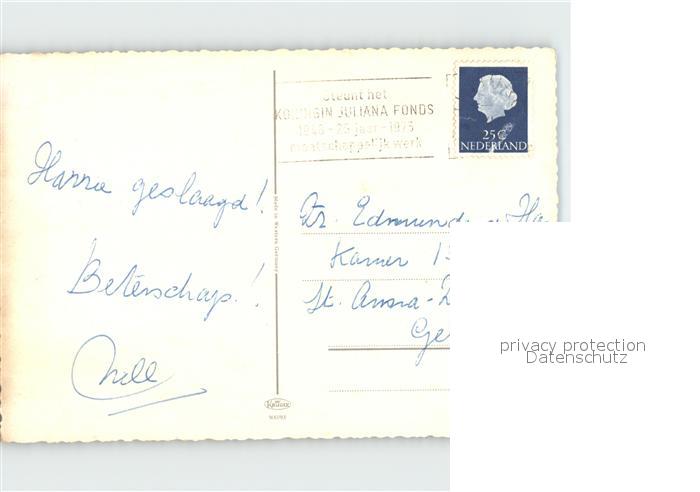 Steunt het
KONINGIN JULIANA FONDS
1948 - 25 jaar - 1973
maatschappelijk werk
25 c
NEDERLAND
Harra geslaagd!
Beterschap!
Nell
Made in Western Germany
Zr. Edmunda
Kamer 1
St. Anna-
Ge
KRÜGER
privacy protection
Datenschutz